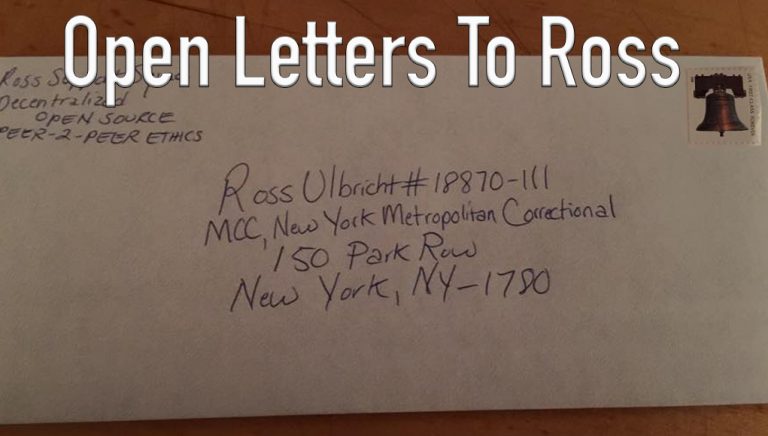 Open Letters To Ross
Ross
Decentralized
OPEN SOURCE
PEER-2-PEER ETHICS
Ross Ulbricht #18870-111
MCC, New York Metropolitan Correctional
150 Park Row
New York, NY-1780